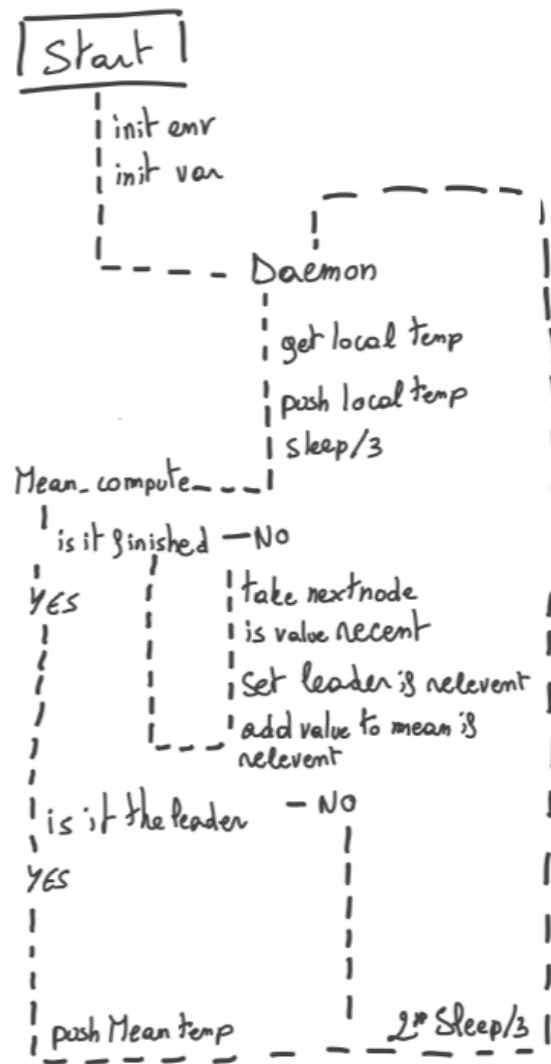 Start
init env
init var
Daemon
get local temp
push local temp
sleep/3
Mean_compute
is it finished - NO
YES
take next node
is value recent
set leader if relevent
add value to mean if
relevent
is it the leader - NO
YES
push Mean temp
2* Sleep/3